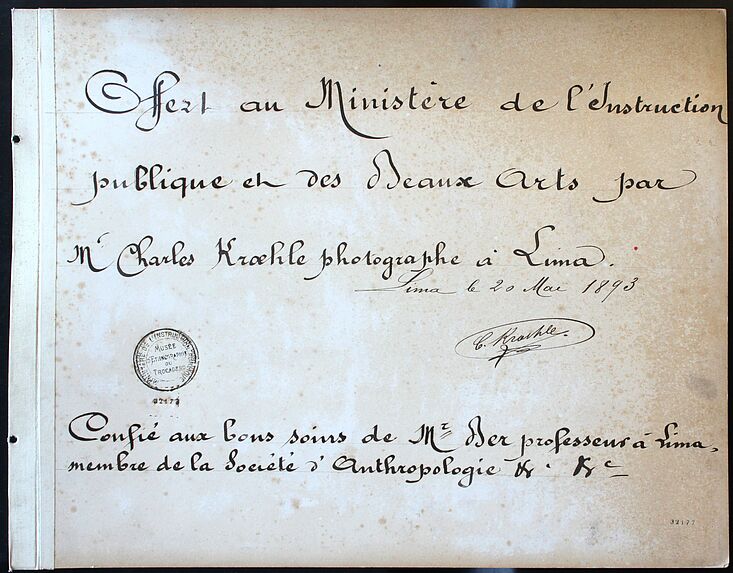 Offert au Ministère de l'Instruction
publique et des Beaux Arts par
Mr Charles Krœhle photographe à Lima.
Lima le 20 Mai 1893
C. Krœhle.
MUSÉE
D'ETHNOGRAPHIE
DU
TROCADÉRO
32177
Confié aux bons soins de Mr Ber professeur à Lima,
membre de la Société d'Anthropologie &. &c
32177